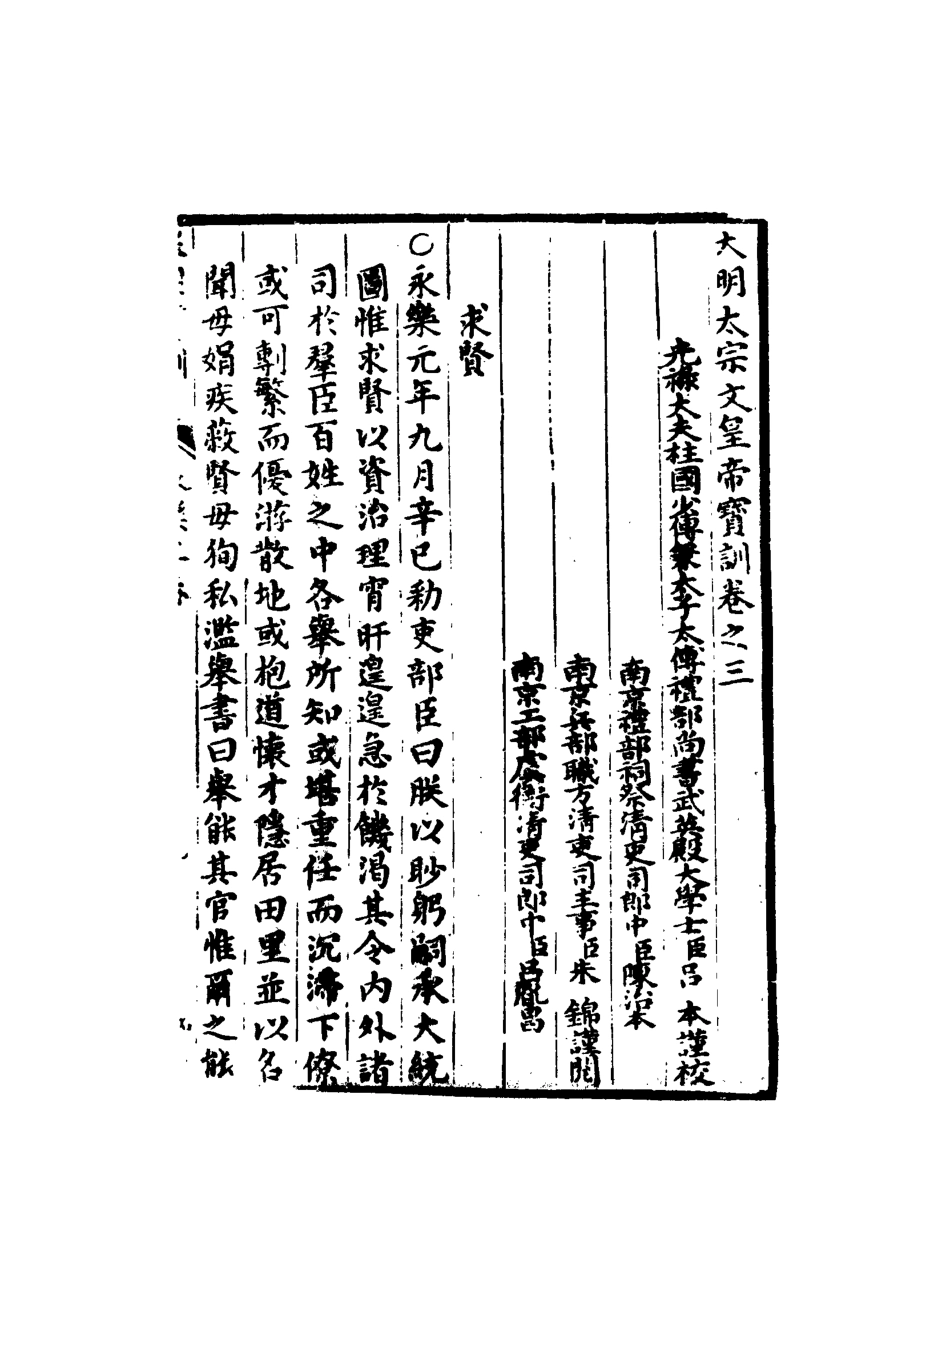 大明太宗文皇帝寶訓卷之三
光祿大夫柱國少傅兼太子太傅禮部尚書武英殿大學士臣呂本謹校
南京禮部祠祭清吏司郎中臣陳治本
南京兵部職方清吏司主事臣朱錦謹閱
南京工部虞衡清吏司郎中臣呂胤昌
求賢
○永樂元年九月辛巳勑吏部臣曰朕以眇躬嗣承大統
圖惟求賢以資治理宵旰遑遑急於饑渴其令內外諸
司於羣臣百姓之中各舉所知或堪重任而沉滯下僚
或可剸繁而優游散地或抱道懷才隱居田里並以名
聞毋娟疾蔽賢毋狥私濫舉書曰舉能其官惟爾之能